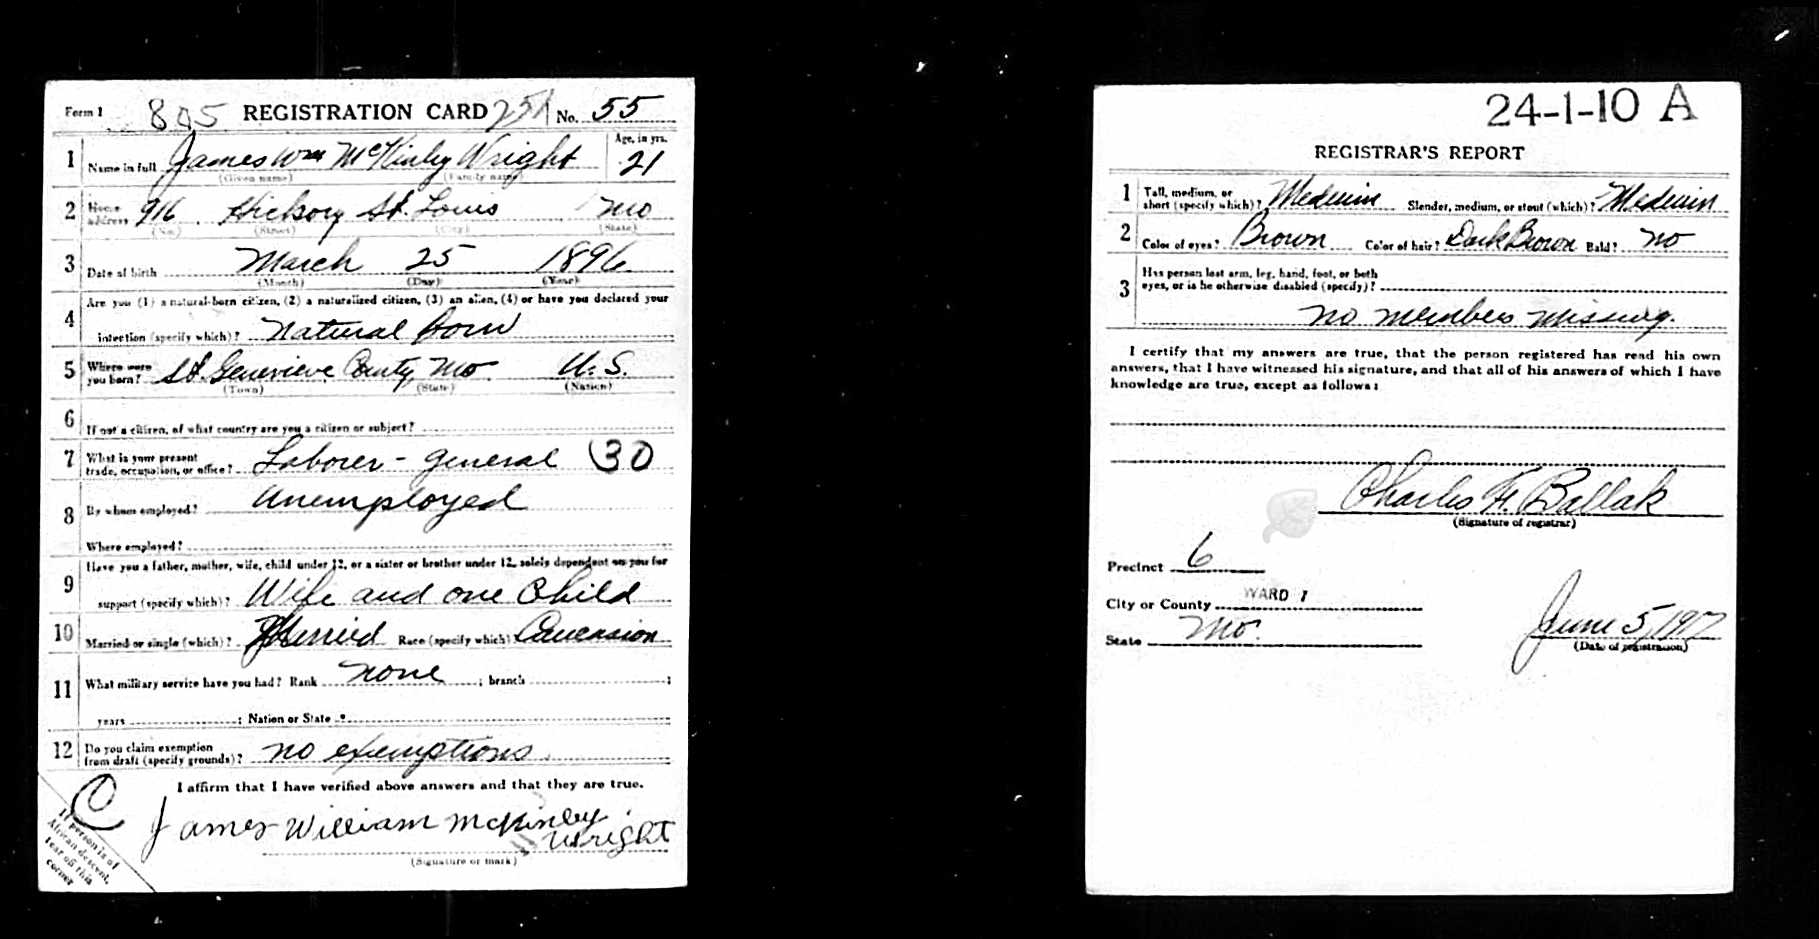 Form 1 805 REGISTRATION CARD 251 No. 55
1 Name in full James Wm McKinley Wright Age, in yrs. 21
(Given name) (Family name)
2 Home address 916 Hickory St. Louis Mo
(No.) (Street) (City) (State)
3 Date of birth March 25 1896
(Month) (Day) (Year)
4 Are you (1) a natural-born citizen, (2) a naturalized citizen, (3) an alien, (4) or have you declared your
intention (specify which)? Natural Born
5 Where were you born? St. Genevieve County, Mo U. S.
(Town) (State) (Nation)
6 If not a citizen, of what country are you a citizen or subject?
7 What is your present trade, occupation, or office? Laborer - general 30
8 By whom employed? Unemployed
Where employed?
9 Have you a father, mother, wife, child under 12, or a sister or brother under 12, solely dependent on you for
support (specify which)? Wife and one Child
10 Married or single (which)? Married Race (specify which)? Caucasion
11 What military service have you had? Rank None ; branch ;
years ; Nation or State
12 Do you claim exemption from draft (specify grounds)? no exemptions
I affirm that I have verified above answers and that they are true.
James William McKinley
Wright
(Signature or mark)
C
If person is of
African descent,
tear off this
corner
24-1-10 A
REGISTRAR'S REPORT
1 Tall, medium, or short (specify which)? Medium Slender, medium, or stout (which)? Medium
2 Color of eyes? Brown Color of hair? Dark Brown Bald? No
3 Has person lost arm, leg, hand, foot, or both
eyes, or is he otherwise disabled (specify)?
no members missing.
I certify that my answers are true, that the person registered has read his own
answers, that I have witnessed his signature, and that all of his answers of which I have
knowledge are true, except as follows:
Charles F. Ballak
(Signature of registrar)
Precinct 6
City or County WARD 1
State Mo.
June 5, 1917
(Date of registration)